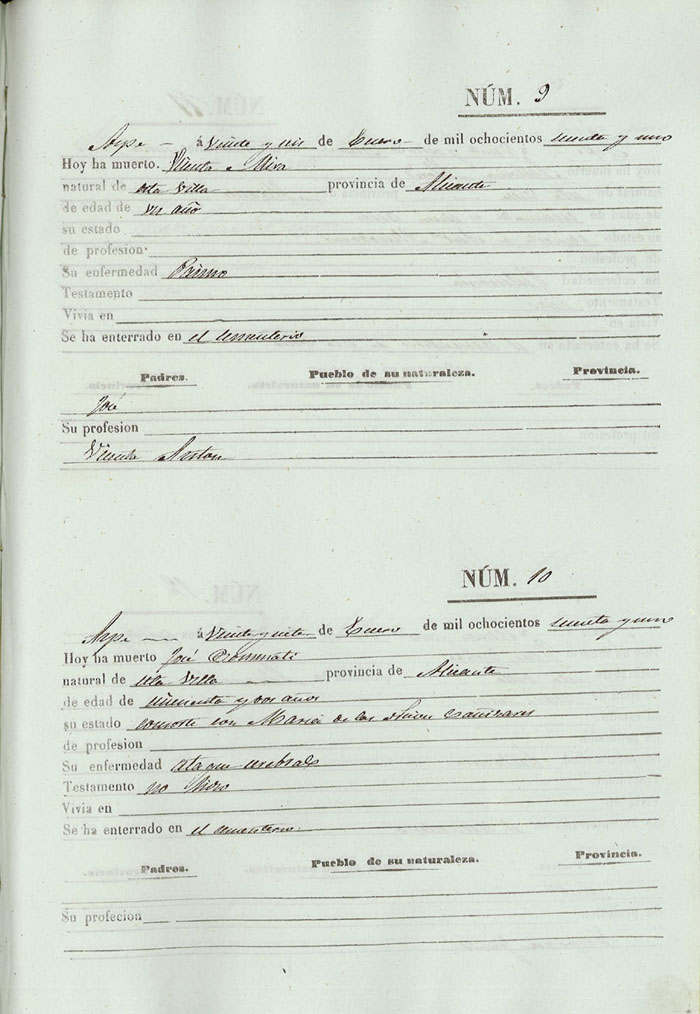 NÚM. 9
Aspe á Veinte y seis de Enero de mil ochocientos sesenta y uno
Hoy ha muerto. Vicenta Mira
natural de esta Villa provincia de Alicante
de edad de un año
su estado
de profesion
Su enfermedad
Testamento
Vivia en
Se ha enterrado en el Cementerio
Padres. Pueblo de su naturaleza. Provincia.
José
Su profesion
Vicenta Anton
NÚM. 10
Aspe á Veinte y siete de Enero de mil ochocientos sesenta y uno
Hoy ha muerto José
natural de esta Villa provincia de Alicante
de edad de cincuenta y dos años
su estado consorte con Maria de las Cañizares
de profesion
Su enfermedad ataque cerebral
Testamento no
Vivia en
Se ha enterrado en el cementerio
Padres. Pueblo de su naturaleza. Provincia.
Su profecion